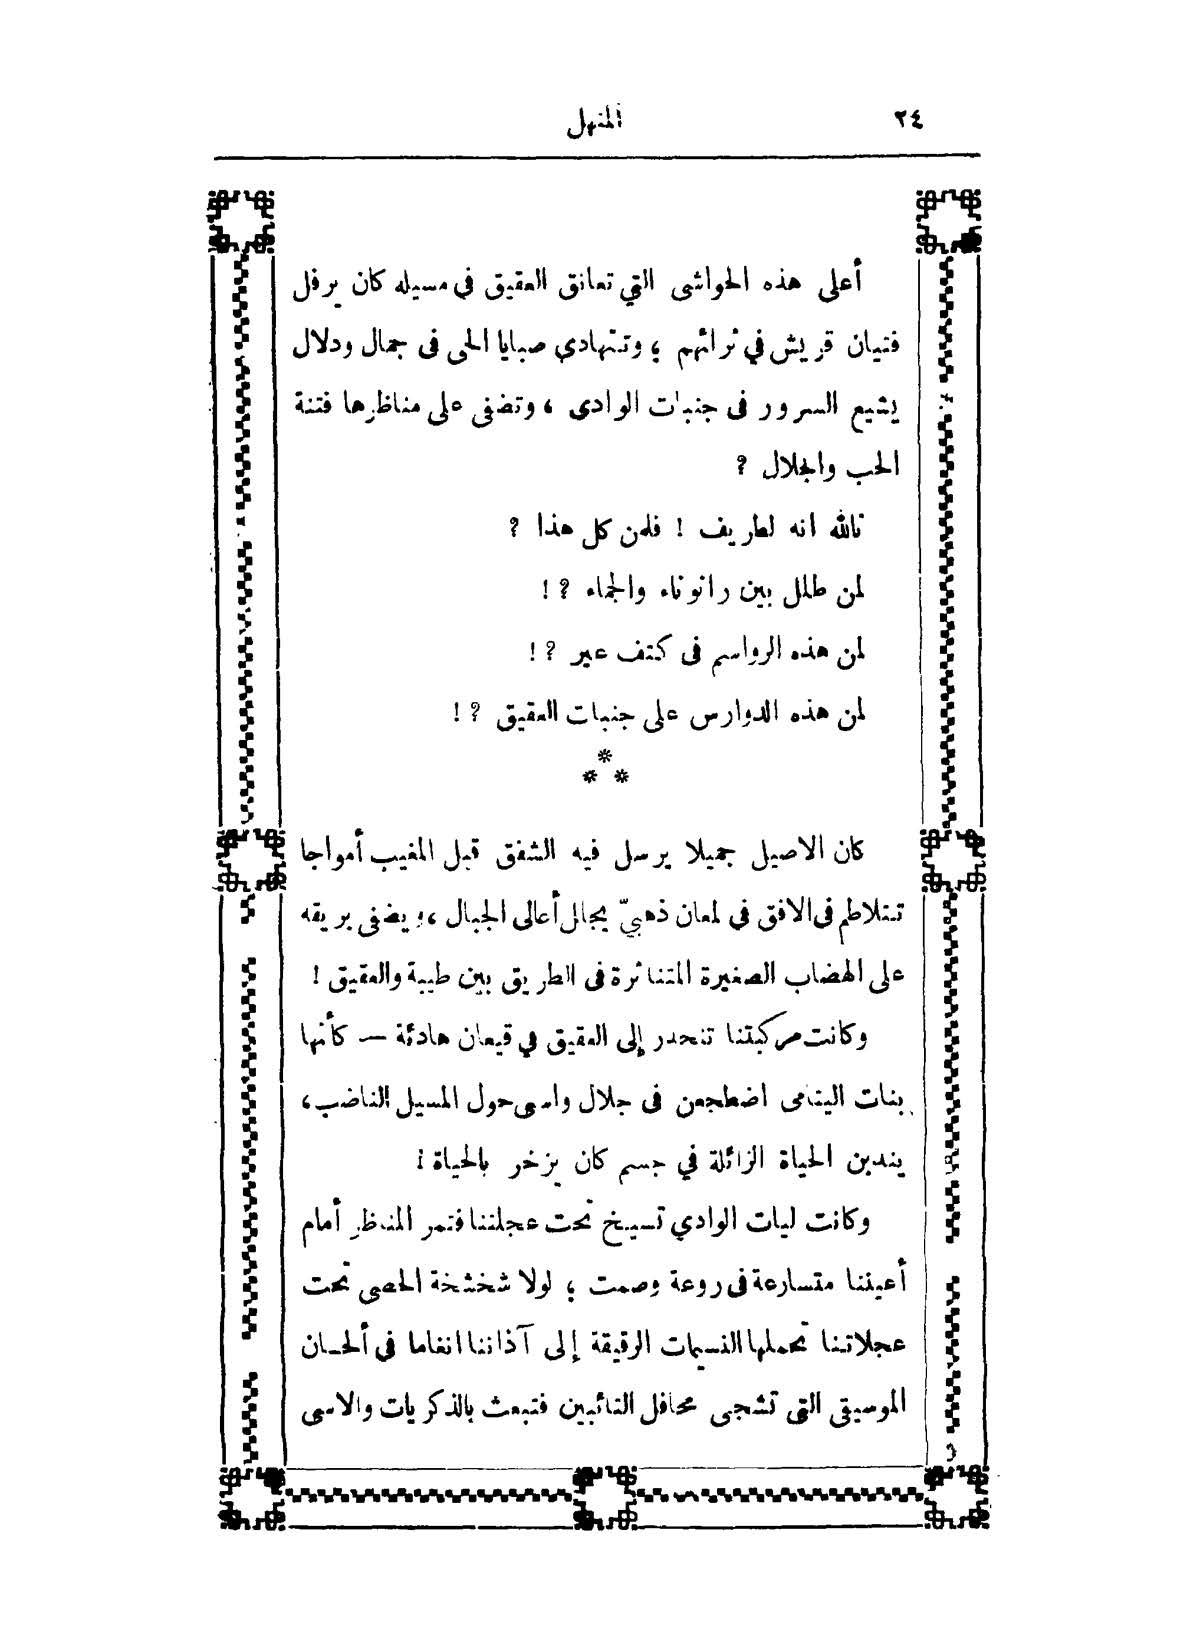 ٢٤
المنهل
أعلى هذه الحواشى التي تعانق العقيق في مسيله كان يرفل
فتيان قريش في ثرائهم ؛ وتتهادي صبايا الحى فى جمال ودلال
يشيع السرور فى جنبات الوادى ، وتضفى على مناظرها فتنة
الحب والجلال ؟
تالله انه لطريف ! فلمن كل هذا ؟
لمن طلل بين رانوناء والجماء ؟ !
لمن هذه الرواسم فى كتف عير ؟ !
لمن هذه الدوارس على جنبات العقيق ؟ !
* * *
كان الاصيل جميلا يرسل فيه الشفق قبل المغيب أمواجا
تتلاطم فى الافق في لمعان ذهبيّ يجلل أعالى الجبال ، ويضفى بريقه
على الهضاب الصغيرة المتناثرة فى الطريق بين طيبة والعقيق !
وكانت مركبتنا تنحدر إلى العقيق في قيعان هادئة — كأنها
بنات اليتامى اضطجعن فى جلال واسى حول المسيل الناضب ،
يندبن الحياة الزائلة في جسم كان يزخر بالحياة !
وكانت ليات الوادي تسيخ تحت عجلتنا فتمر المناظر أمام
أعيننا متسارعة فى روعة وصمت ؛ لولا شخشخة الحصى تحت
عجلاتنا تحملها النسيمات الرقيقة إلى آذاننا انغاما في ألحان
الموسيقى التى تشجى محافل التائبين فتبعث بالذكريات والاسى